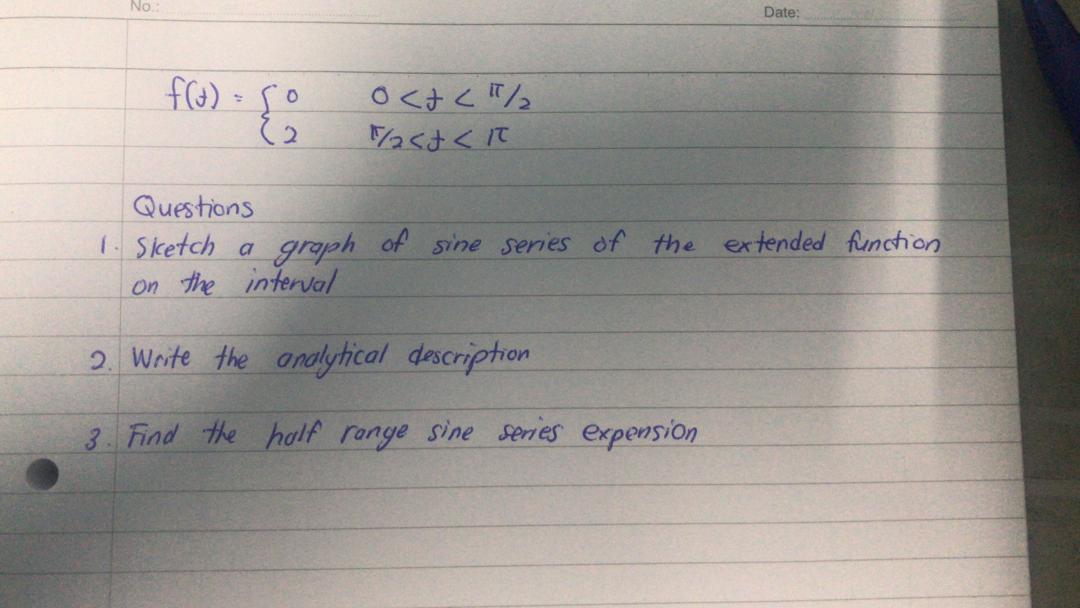 No.:
Date:
f(t) = { 0 0 < t < π/2
2 π/2 < t < π
Questions
1. Sketch a graph of sine series of the extended function
on the interval
2. Write the analytical description
3. Find the half range sine series expension